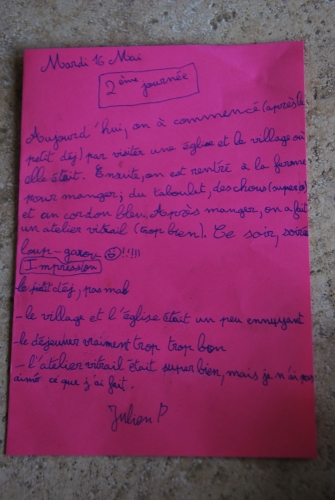 Mardi 16 Mai
2ème journée
Aujourd'hui, on à commencé (après le
petit déj) par visiter une église et le village où
elle était. Ensuite, on est rentré à la ferme
pour manger; du taboulat, des chous (supers)
et un cordon bleu. Après manger, on a fait
un atelier vitrail (trop bien). Ce soir, soirée
loup-garou !!!!!
Impression
le petit déj, pas mal
- le village et l'église était un peu ennuyant
- le déjeuner vraiment trop trop bon
- l'atelier vitrail était super bien, mais je n'ai pas
aimé ce que j'ai fait.
Julien P